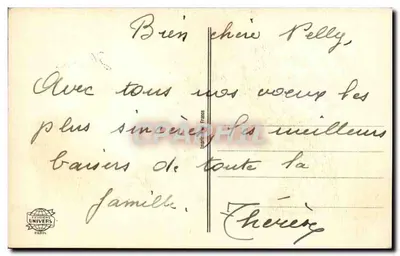 Bien chère Nelly,
Avec tous nos voeux les
plus sincères, les meilleurs
baisers de toute la
famille.
Thérèse
UNIVERS
PARIS
France
CPAREMA